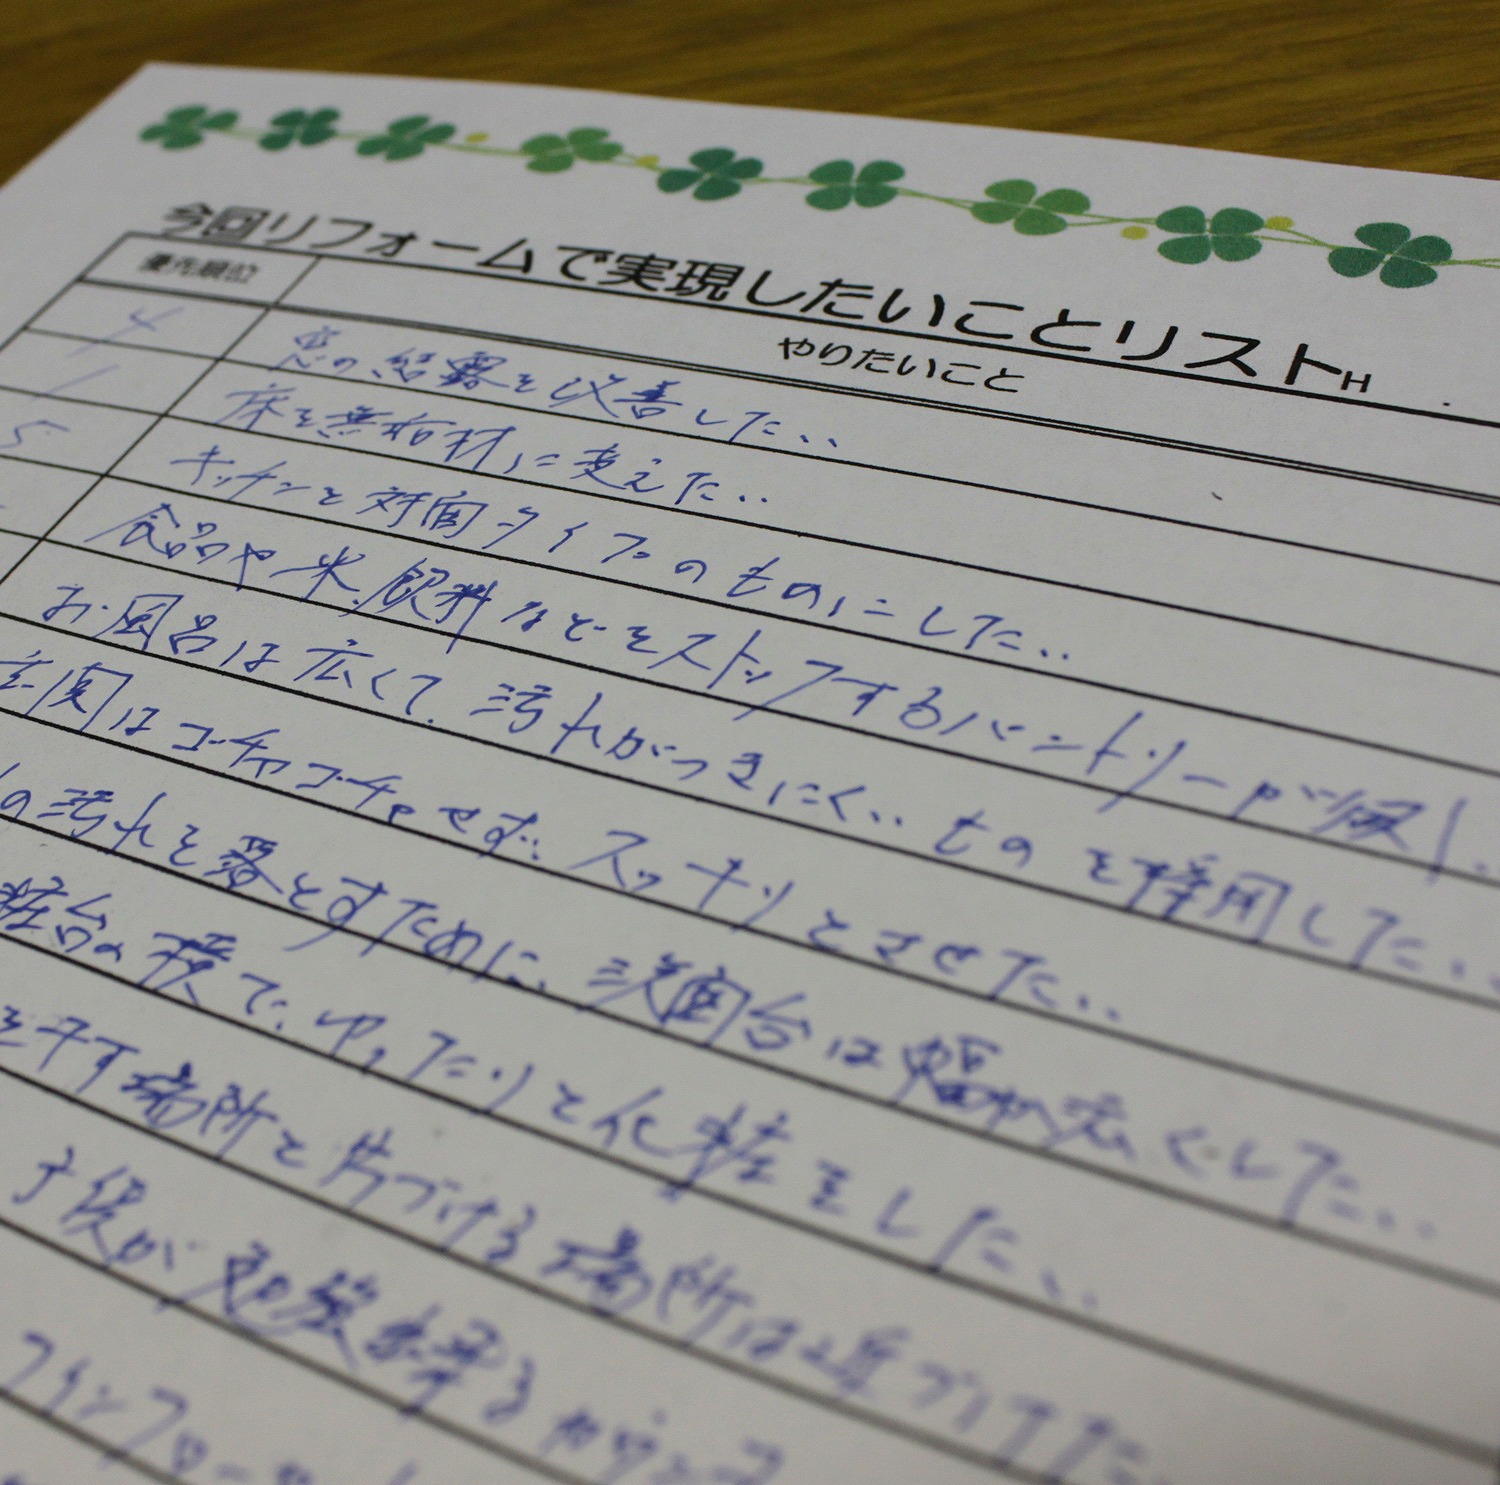 今回リフォームで実現したいことリスト H
優先順位 やりたいこと
4 窓の結露を改善したい。
1 床を無垢材に変えたい。
5 キッチンを対面タイプのものにしたい。
食品や米、飲料などをストックするパントリーが欲し
お風呂は広くて、汚れがつきにくいものを採用したい。
玄関はゴチャゴチャせず、スッキリとさせたい。
の汚れを落とすために、洗面台は幅が広くしたい。
粧台の横で、ゆったりと化粧をしたい。
を干す場所と片づける場所は近づけた
子供が勉強